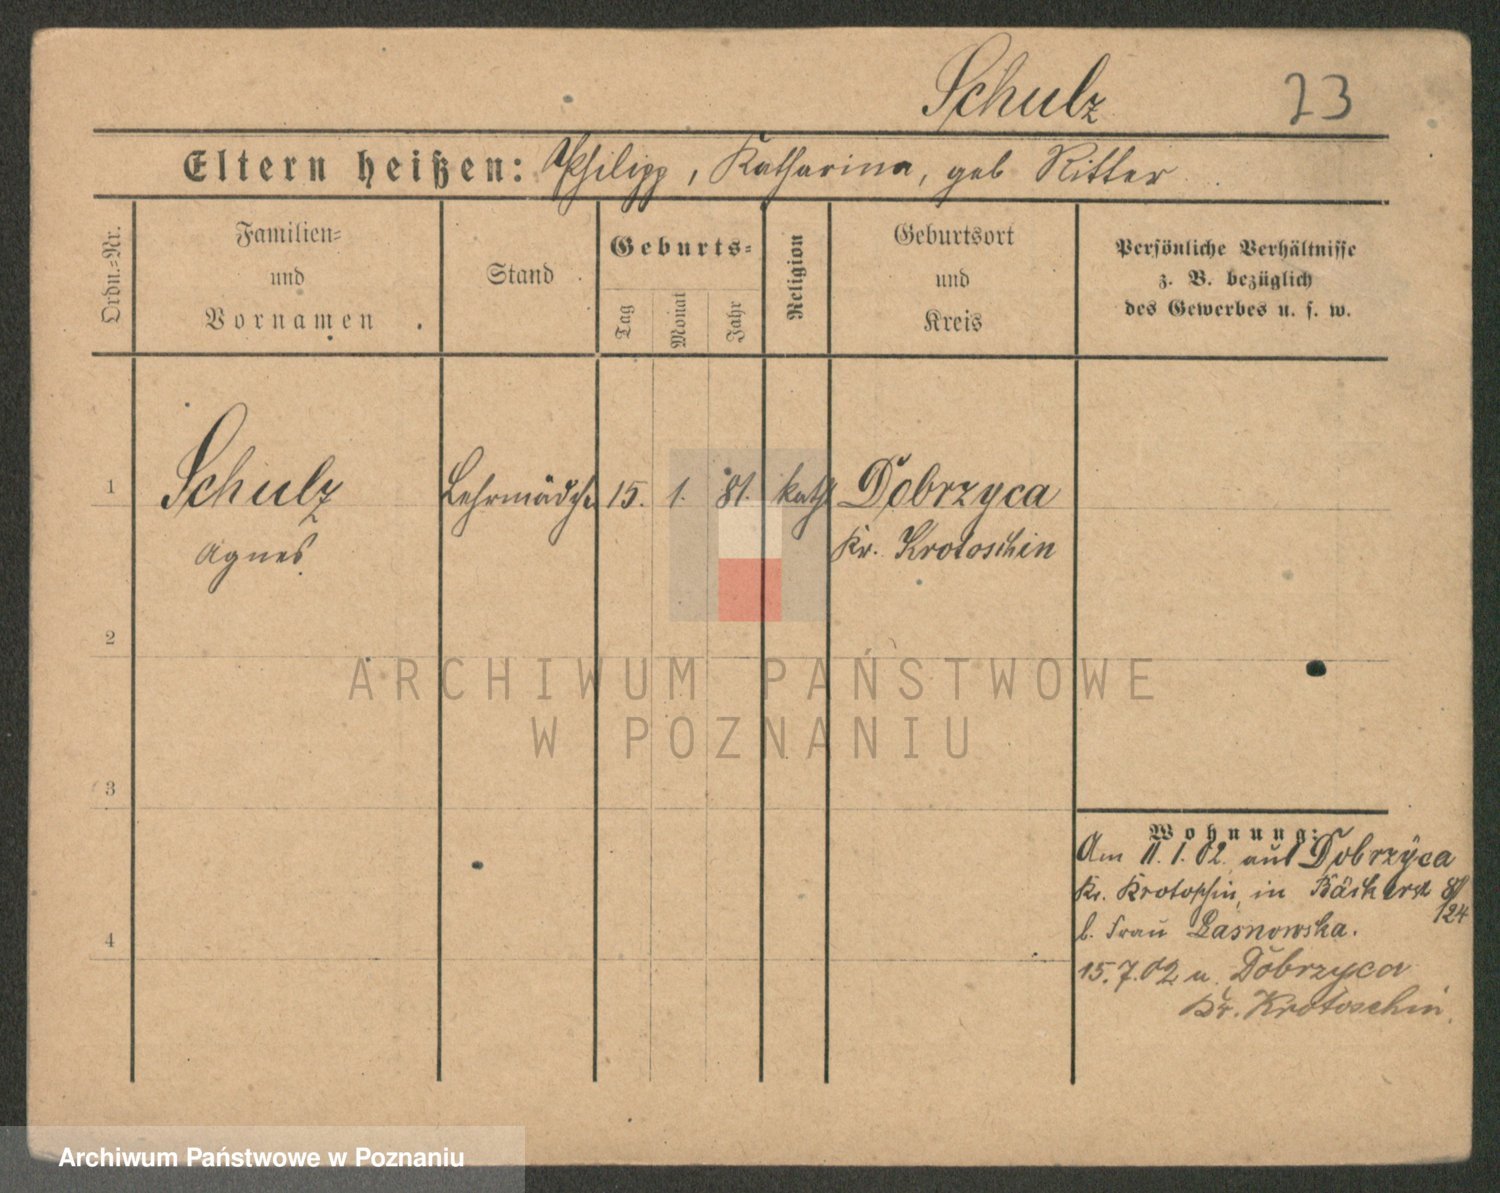 Schulz 23
Eltern heißen: Philipp, Katharina, geb Ritter
Ordn.-Nr.
Familien-
und
Vornamen
Stand
Geburts-
Tag
Monat
Jahr
Religion
Geburtsort
und
Kreis
Persönliche Verhältnisse
z. B. bezüglich
des Gewerbes u. s. w.
1 Schulz Lehrmädch. 15. 1. 81. kath Dobrzyca
Agnes Kr. Krotoschin
2
ARCHIWUM PAŃSTWOWE
W POZNANIU
3
Wohnung:
Am 11.1.02. aus Dobrzyca
Kr. Krotoschin, in Bäckerst 8/
124
b. Frau Lasnowska.
4
15.7.02 n. Dobrzyca
Kr. Krotoschin.
Archiwum Państwowe w Poznaniu